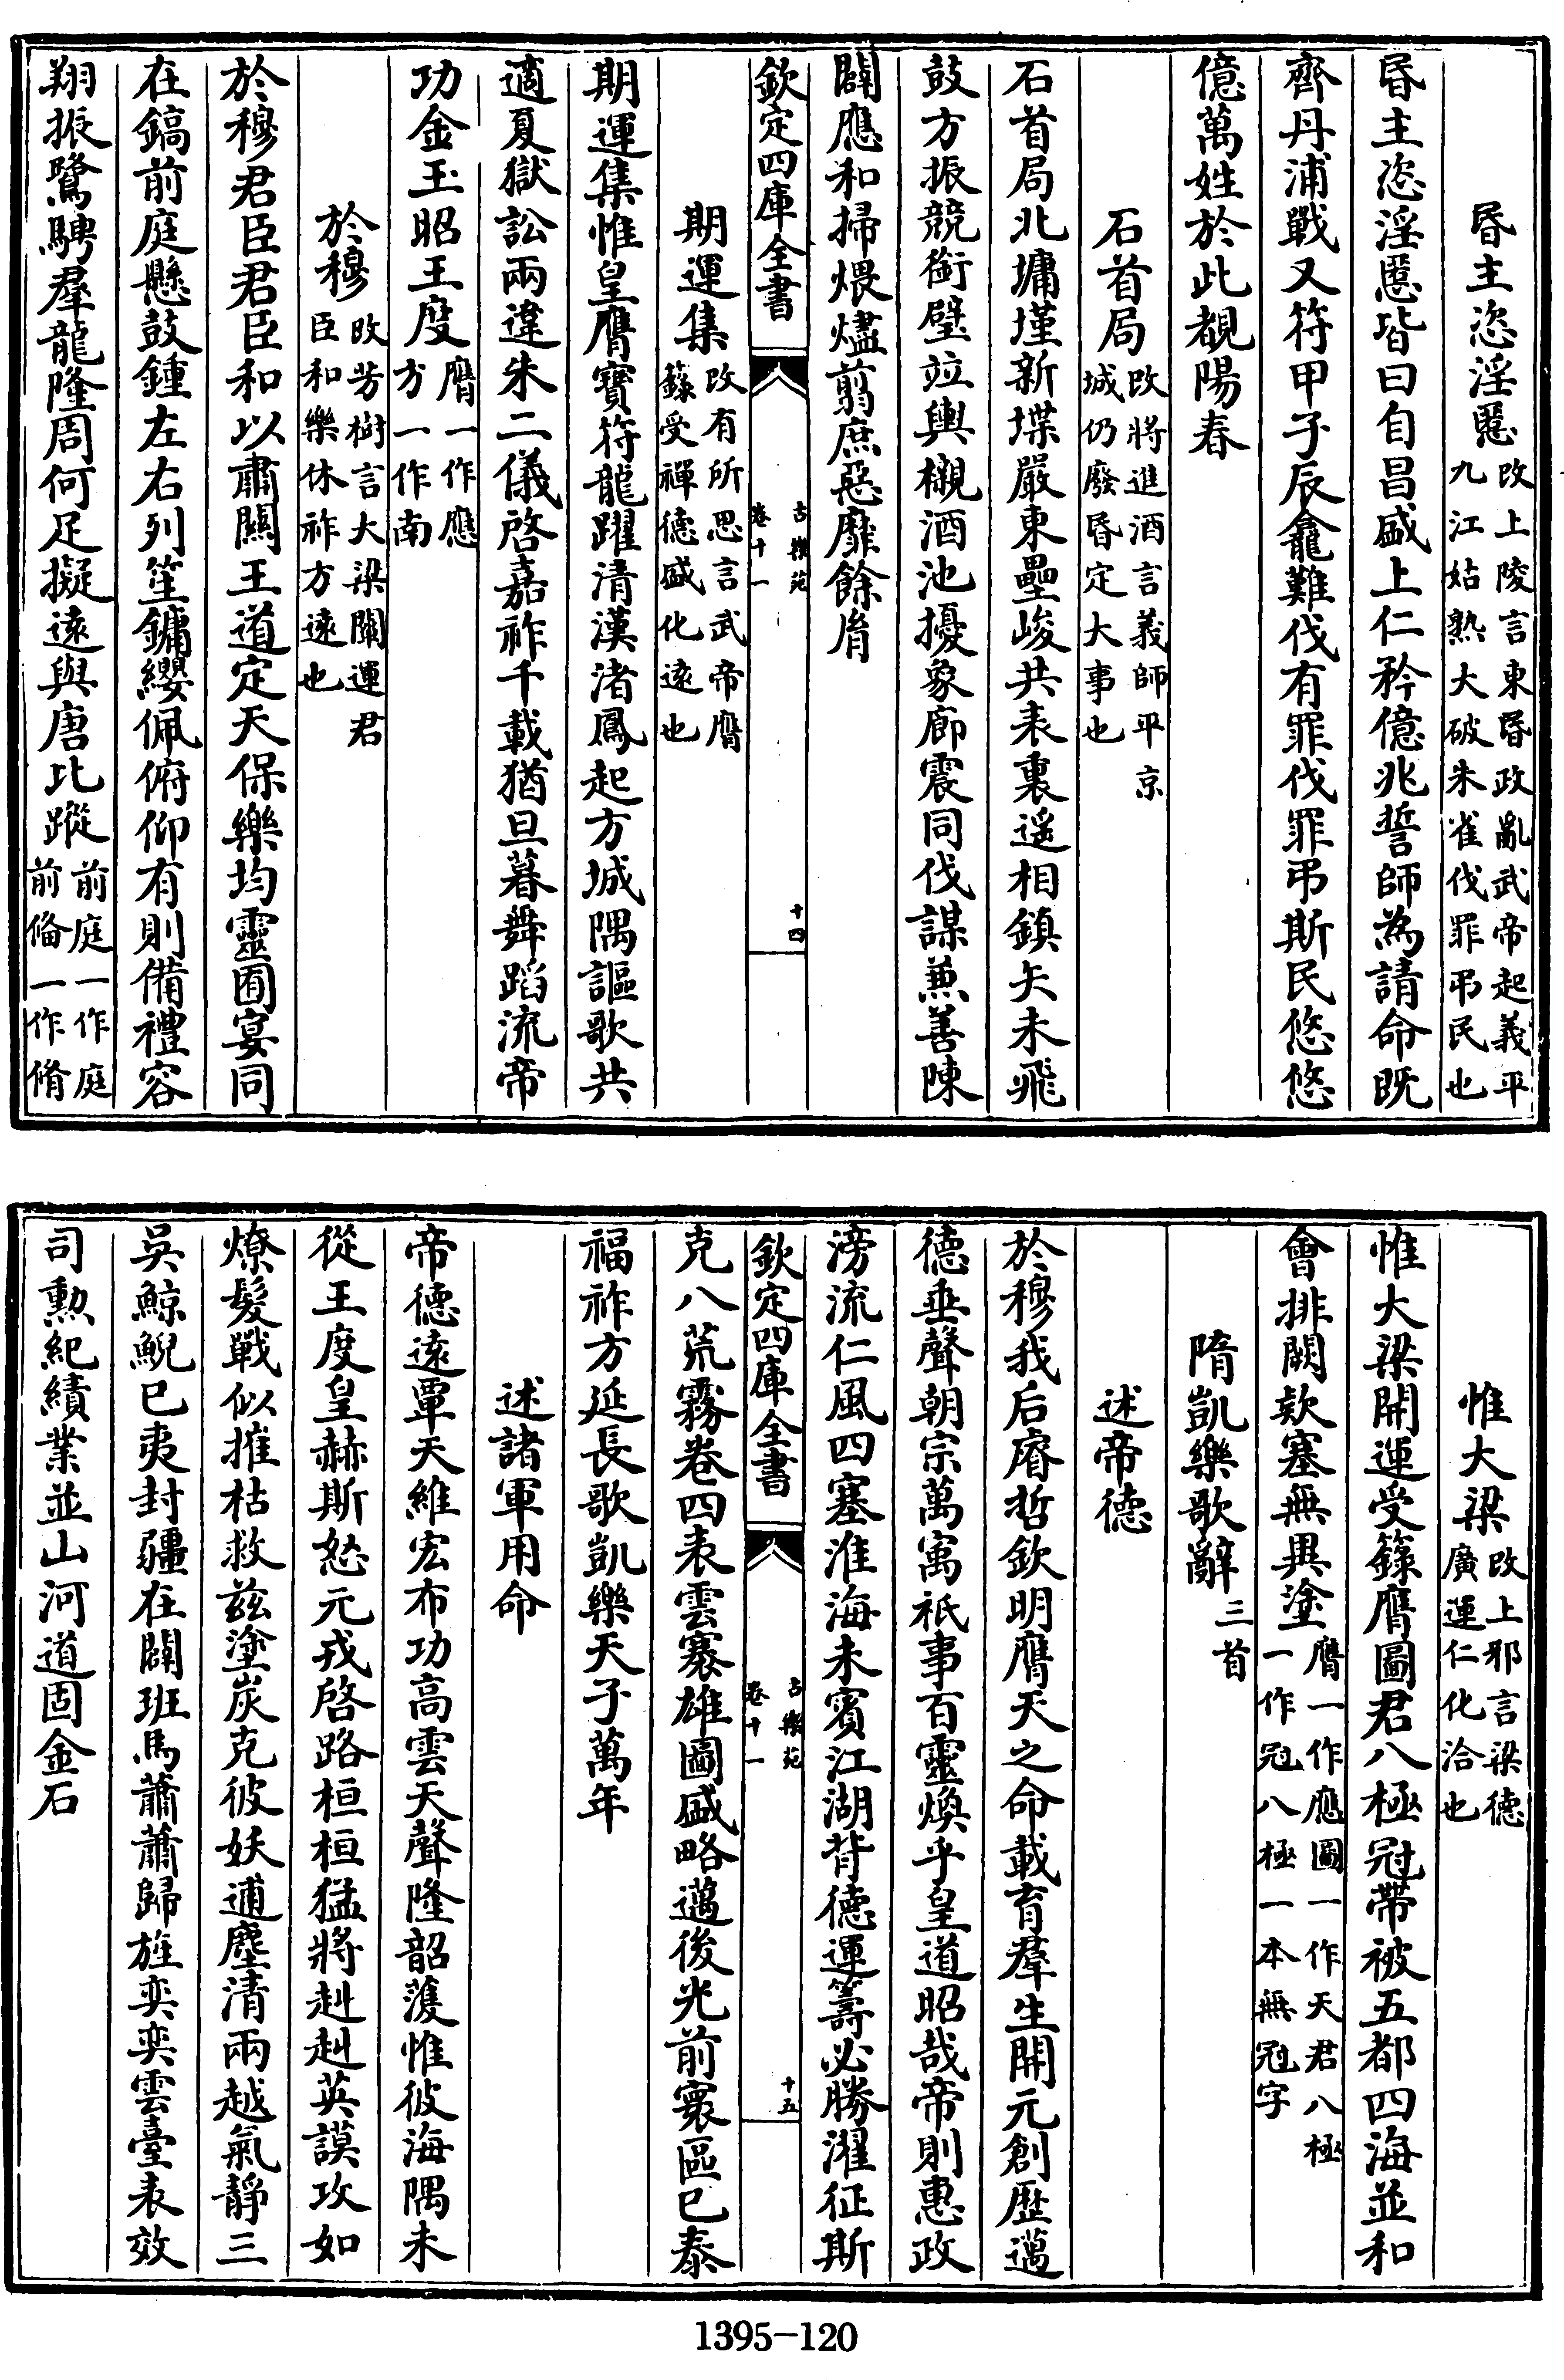 昬主恣淫慝改上陵言東昬政亂武帝起義平九江姑熟大破朱雀伐罪弔民也
昬主恣淫慝皆曰自昌盛上仁矜億兆誓師為請命既
齊丹浦戰又符甲子辰龕難伐有罪伐罪弔斯民悠悠
億萬姓於此覩陽春
石首局改將進酒言義師平京城仍廢昬定大事也
石首局北墉墐新堞嚴東壘峻共表裏遥相鎮矢未飛
鼓方振競銜璧竝輿櫬酒池擾象廊震同伐謀兼善陳
闢應和掃煨燼翦庶惡靡餘胤
欽定四庫全書
古樂苑
卷十一
十四
期運集改有所思言武帝膺籙受禪德盛化遠也
期運集惟皇膺寶符龍躍清漢渚鳳起方城隅謳歌共
適夏獄訟兩違朱二儀啓嘉祚千載猶旦暮舞蹈流帝
功金玉昭王度膺一作應方一作南
於穆改芳樹言大梁闡運君臣和樂休祚方遠也
於穆君臣君臣和以肅關王道定天保樂均靈囿宴同
在鎬前庭懸鼓鍾左右列笙鏞纓佩俯仰有則備禮容
翔振鷺騁羣龍隆周何足擬遠與唐比蹤前庭一作庭前脩一作脩
惟大梁改上邪言梁德廣運仁化洽也
惟大梁開運受籙膺圖君八極冠帶被五都四海並和
會排闕欵塞無異塗膺一作應圖一作天君八極一作冠八極一本無冠字
隋凱樂歌辭三首
述帝德
於穆我后睿哲欽明膺天之命載育羣生開元創歷邁
德垂聲朝宗萬㝢祇事百靈煥乎皇道昭哉帝則惠政
滂流仁風四塞淮海未賓江湖背德運籌必勝濯征斯
欽定四庫全書
古樂苑
卷十一
十五
克八荒霧卷四表雲褰雄圖盛略邁後光前寰區已泰
福祚方延長歌凱樂天子萬年
述諸軍用命
帝德遠覃天維宏布功高雲天聲隆韶頀惟彼海隅未
從王度皇赫斯怒元戎啓路桓桓猛將赳赳英謨攻如
燎髮戰似摧枯救兹塗炭克彼妖逋塵清兩越氣靜三
吳鯨鯢已夷封疆在闢班馬蕭蕭歸旌奕奕雲臺表效
司勳紀績業並山河道固金石
1395-120